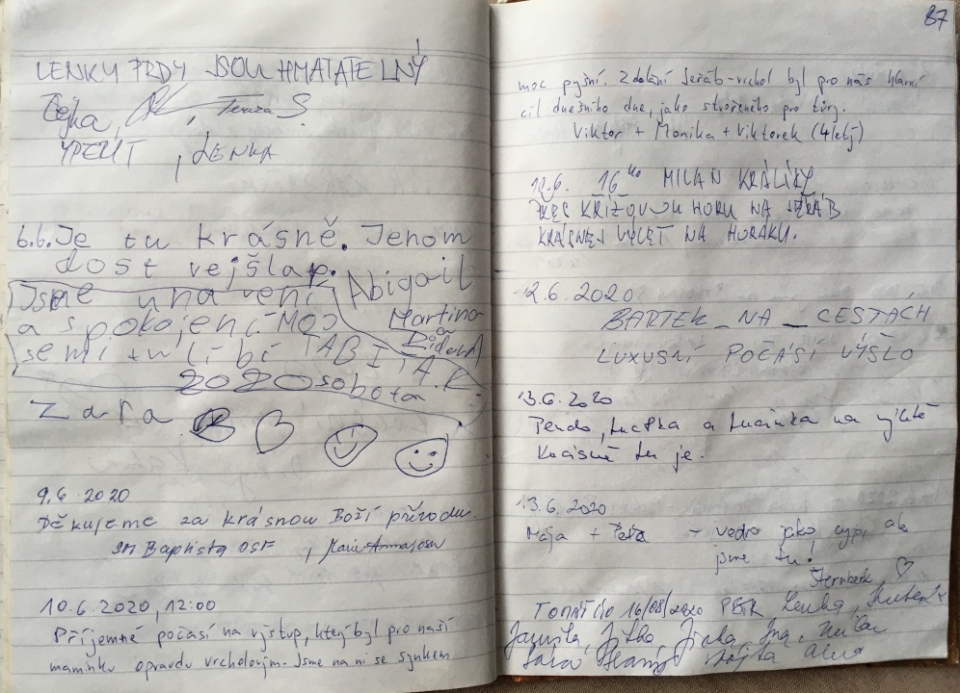 LENKY PRDY JSOU HMATATELNÝ
Čejka, Tereza S.
LENKA
6.6. Je tu krásně. Jenom
dost vejšlap.
Abigail
Jsme unavení
a spokojení. MOC
se mi tu líbí TABITA.K
Martina
a
2020 sobota
Zara
9.6 2020
Děkujeme za krásnou Boží přírodu.
SM Baptista OSF,
10.6.2020, 12:00
Příjemné počasí na výstup, který byl pro naší
maminku opravdu vrcholovým. Jsme na ni se synkem
87
moc pyšní. Zdolání Jeřáb-vrchol byl pro nás hlavní
cíl dnešního dne, jako stvořeného pro túry.
Viktor + Monika + Viktorek (4letý)
16 MILAN KRÁLÍKY
PŘES KŘÍŽOVOU HORU NA JEŘÁB
KRÁSNEJ VÝLET NA HORÁKU.
12.6.2020
BARTEK_NA_CESTÁCH
LUXUSNÍ POČASÍ VYŠLO
13.6.2020
a Lucinka na výletě
Krásně tu je.
13.6.2020
Mája + Péťa - vedro jako cyp, ale
jsme tu!
Šternberk ♡
PETR Lenka,
Jarmila, Jitka